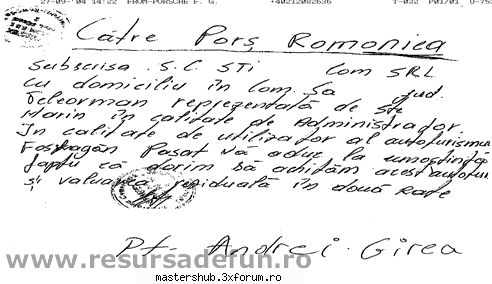 27-09-'04 14:22 FROM-PORSCHE F. G. +40212082636 T-032 P01/01 O-75
Către Porș Romoniea
Subscrisa S.C. STi Com SRL
Cu domiciliu în Com. Sa jud.
Teleorman reprezentată de Ște
Marin în calitate de Administrador.
În calitate de utilizator al autoturismu
Fosfragăn Pasat Vă aduc la cunoștință
faptu că dorim să achităm acest autotur
și valuarea reziduală în două Rate
Pt. Andrei Girea
www.resursadefun.ro
mastershub.3xforum.ro